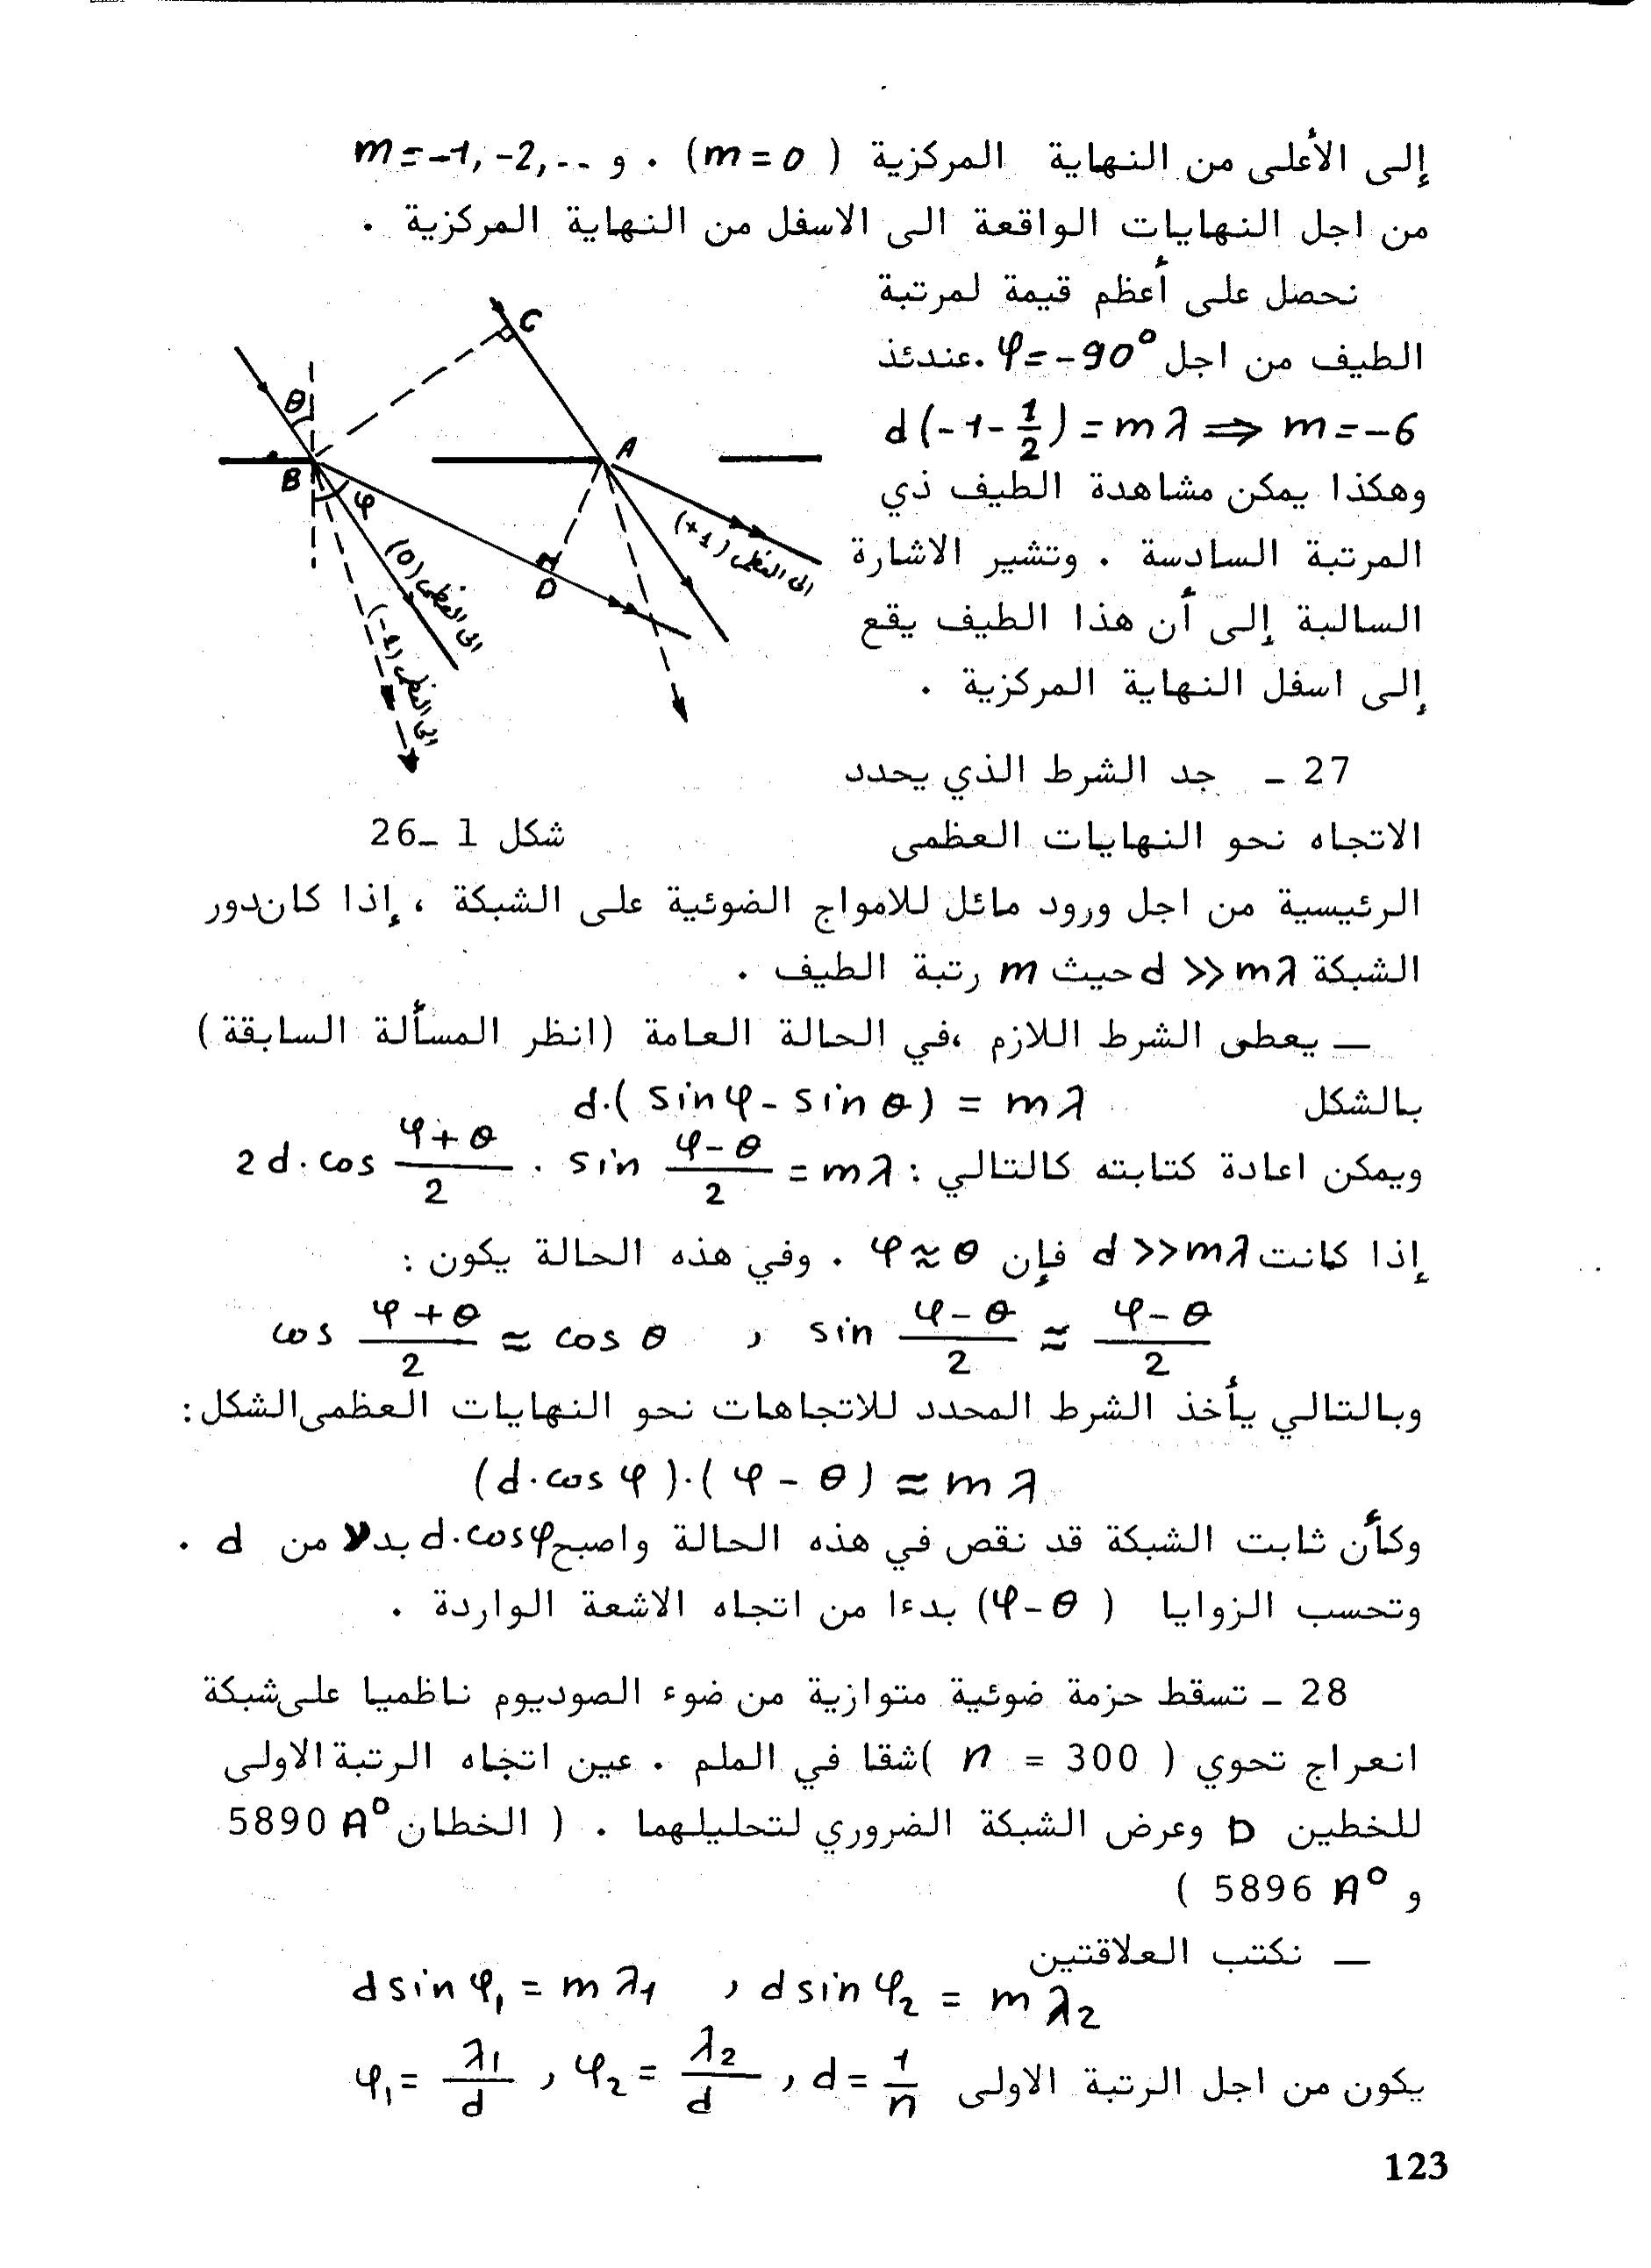 إلى الأعلى من النهاية المركزية ( m = 0 ) . و m = -1, -2, ..
من اجل النهايات الواقعة الى الاسفل من النهاية المركزية .
نحصل على أعظم قيمة لمرتبة
الطيف من اجل φ = -90° . عندئذ
d(-1 - 1/2) = mλ ⇒ m = -6
وهكذا يمكن مشاهدة الطيف ذي
المرتبة السادسة . وتشير الاشارة
السالبة إلى أن هذا الطيف يقع
إلى اسفل النهاية المركزية .
C
θ
A
B
φ
D
الى العظمى (+1)
الى العظمى (0)
الى العظمى (-1)
شكل 1 _26
27 _ جد الشرط الذي يحدد
الاتجاه نحو النهايات العظمى
الرئيسية من اجل ورود مائل للامواج الضوئية على الشبكة ، إذا كان دور
الشبكة d >> mλ حيث m رتبة الطيف .
_ يعطى الشرط اللازم ،في الحالة العامة (انظر المسألة السابقة)
بالشكل d.( sin φ - sin θ ) = mλ
ويمكن اعادة كتابته كالتالي : 2d . cos (φ+θ)/2 . sin (φ-θ)/2 = mλ
إذا كانت d >> mλ فإن φ ≈ θ . وفي هذه الحالة يكون :
cos (φ+θ)/2 ≈ cos θ , sin (φ-θ)/2 ≈ (φ-θ)/2
وبالتالي يأخذ الشرط المحدد للاتجاهات نحو النهايات العظمى الشكل :
(d.cos φ).( φ - θ ) ≈ mλ
وكأن ثابت الشبكة قد نقص في هذه الحالة واصبح d.cosφ بدلا من d .
وتحسب الزوايا ( φ-θ ) بدءا من اتجاه الاشعة الواردة .
28 _ تسقط حزمة ضوئية متوازية من ضوء الصوديوم ناظميا على شبكة
انعراج تحوي ( n = 300 ) شقا في الملم . عين اتجاه الرتبة الاولى
للخطين D وعرض الشبكة الضروري لتحليلهما . ( الخطان 5890 A°
و 5896 A° )
_ نكتب العلاقتين
d sin φ₁ = mλ₁ , d sin φ₂ = mλ₂
يكون من اجل الرتبة الاولى φ₁ = λ₁/d , φ₂ = λ₂/d , d = 1/n
123